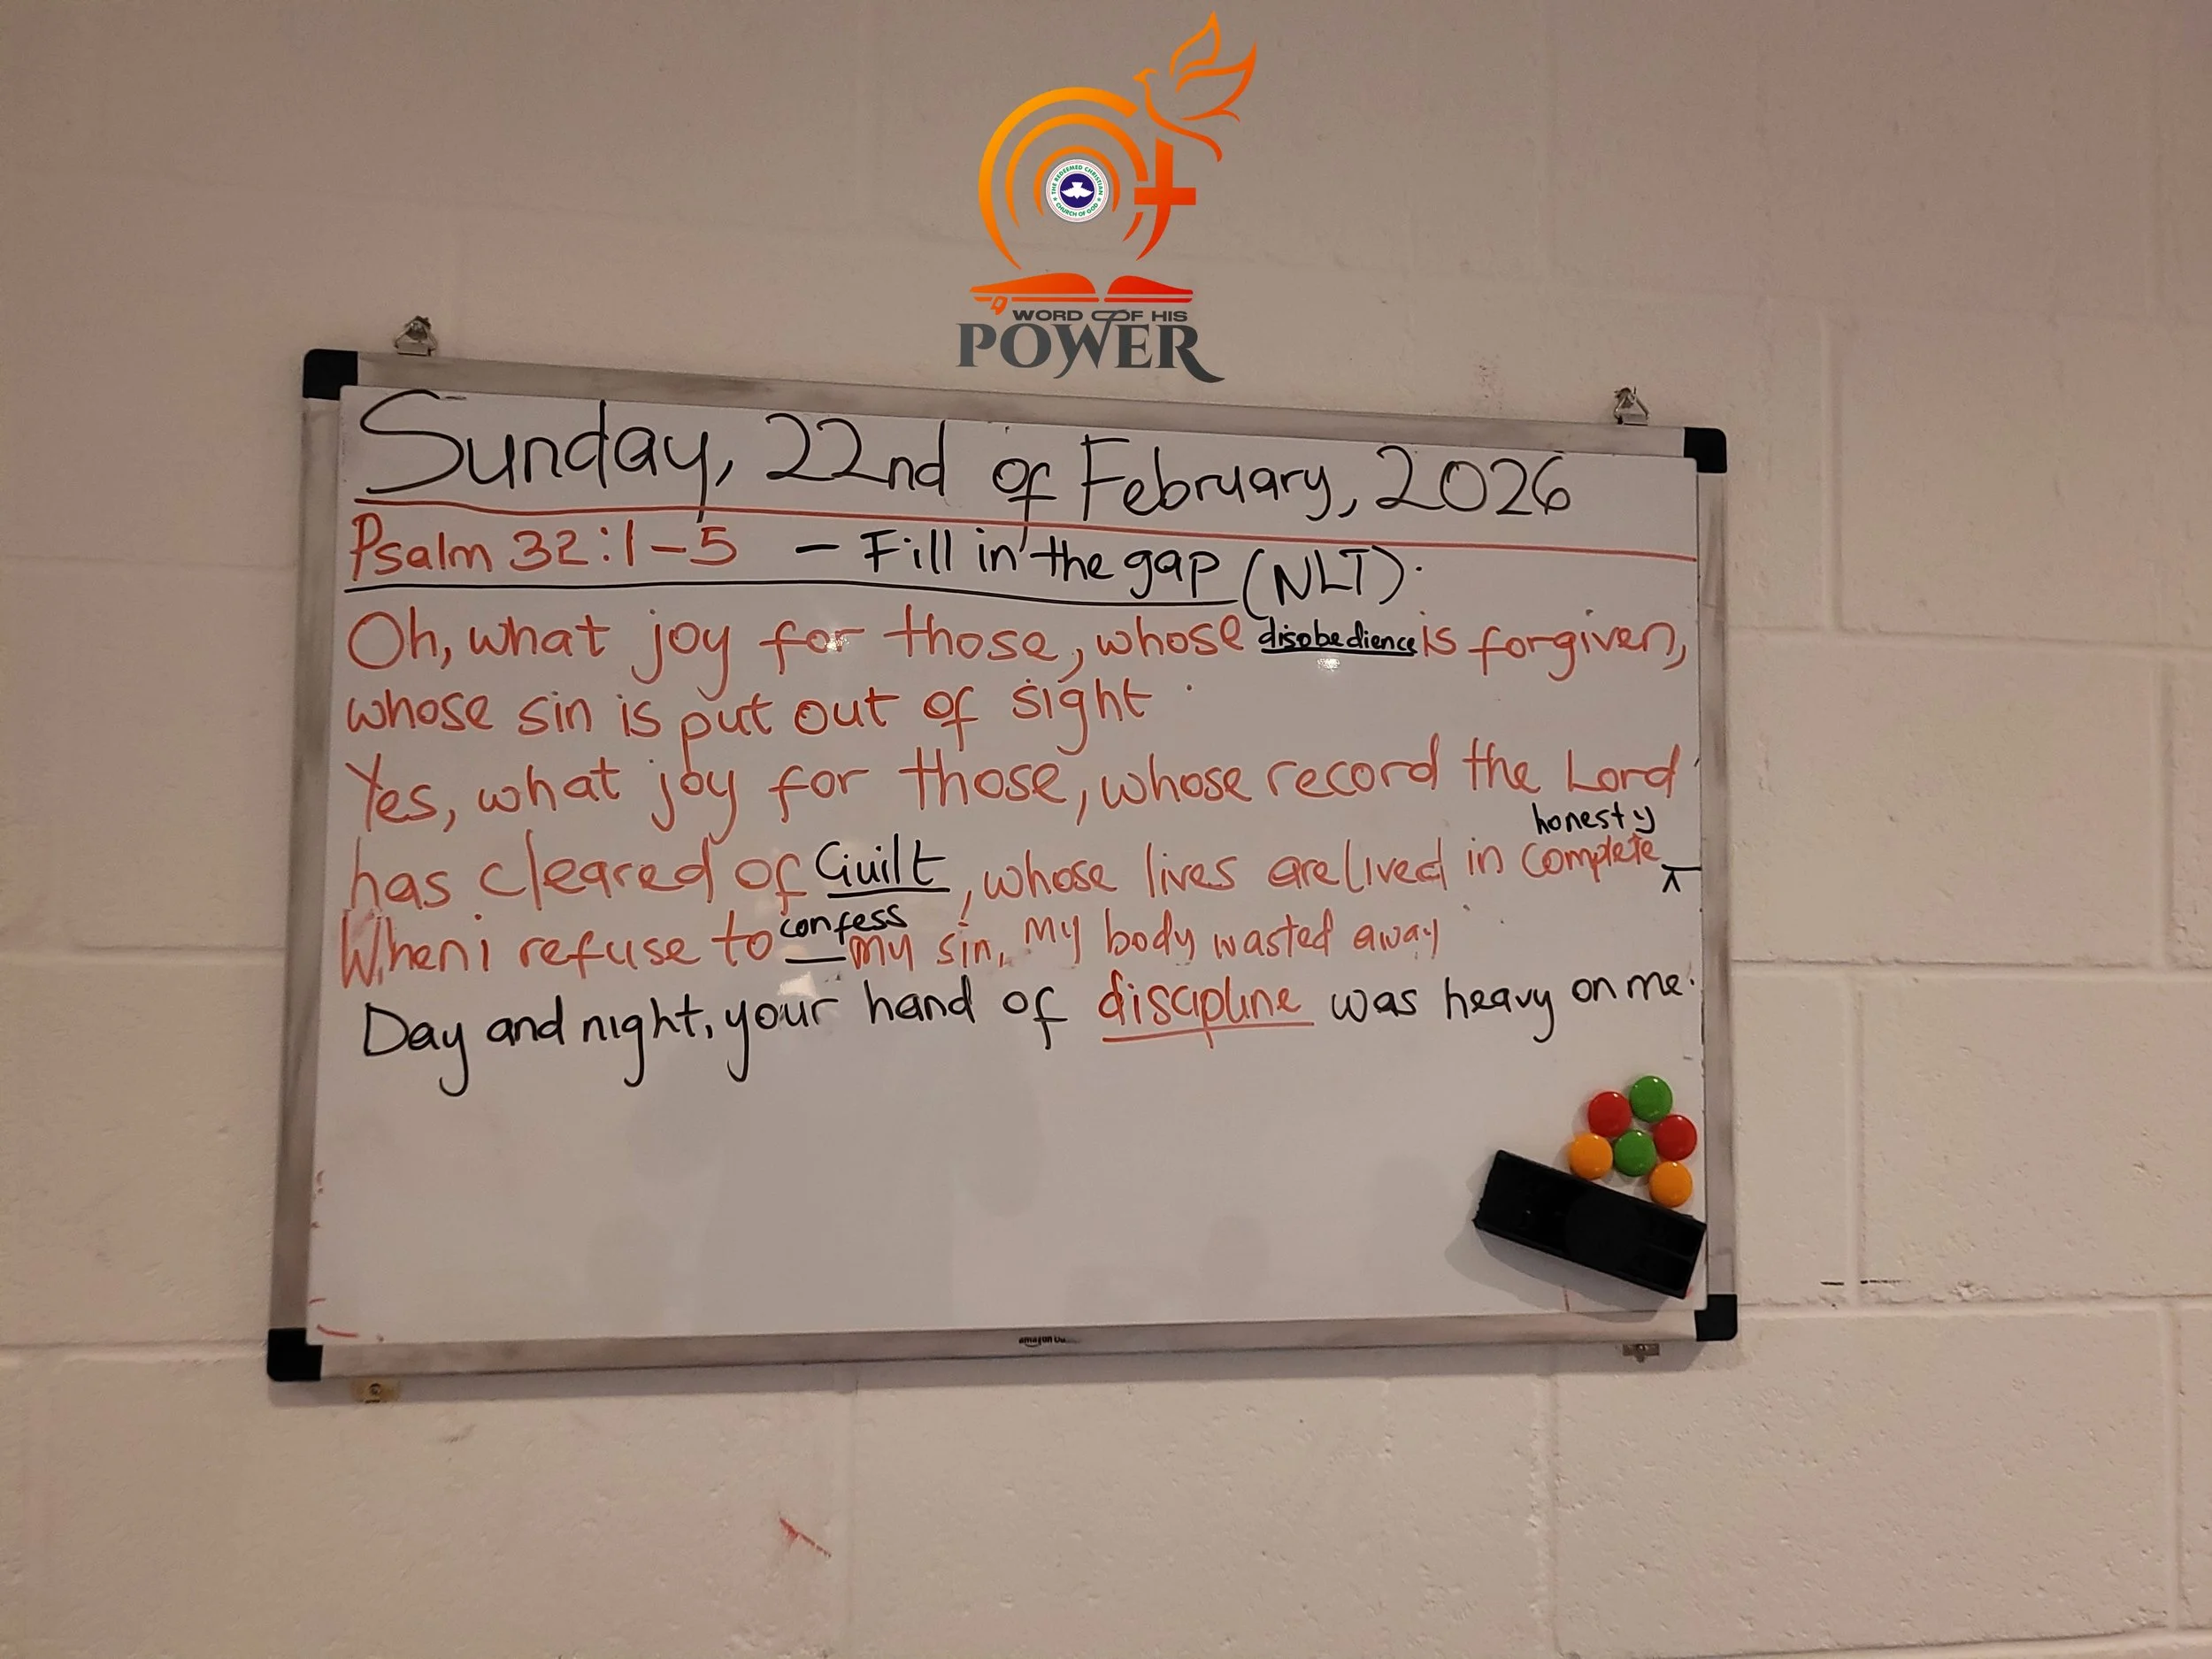 THE REDEEMED CHRISTIAN
CHURCH OF GOD
WORD OF HIS
POWER
Sunday, 22nd of February, 2026
Psalm 32:1-5 - Fill in the gap (NLT).
Oh, what joy for those, whose disobedience is forgiven,
whose sin is put out of sight
Yes, what joy for those, whose record the Lord
has cleared of Guilt, whose lives are lived in complete honesty
When i refuse to confess my sin, my body wasted away
Day and night, your hand of discipline was heavy on me.
amazon